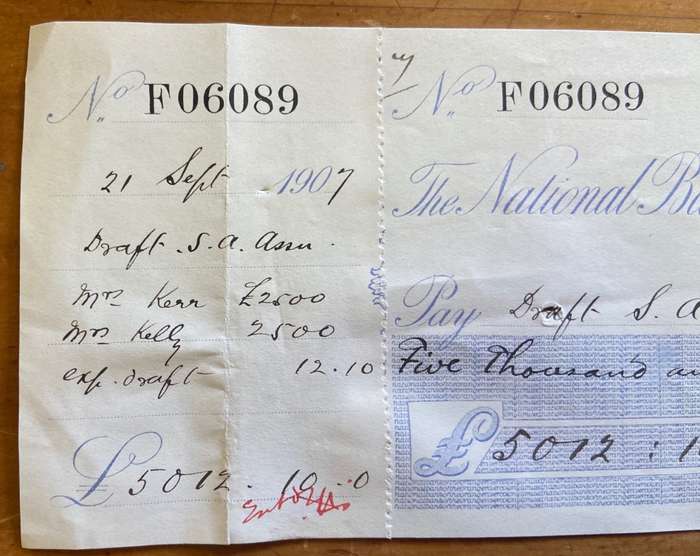 No F06089
21 Sept 1907
Draft. S. A. Assn.
Mrs Kerr £2500
Mrs Kelly 2500
exp. draft 12.10
£5012.10.0
No F06089
The National Ba
Pay Draft S. A
Five Thousand an
£5012:1